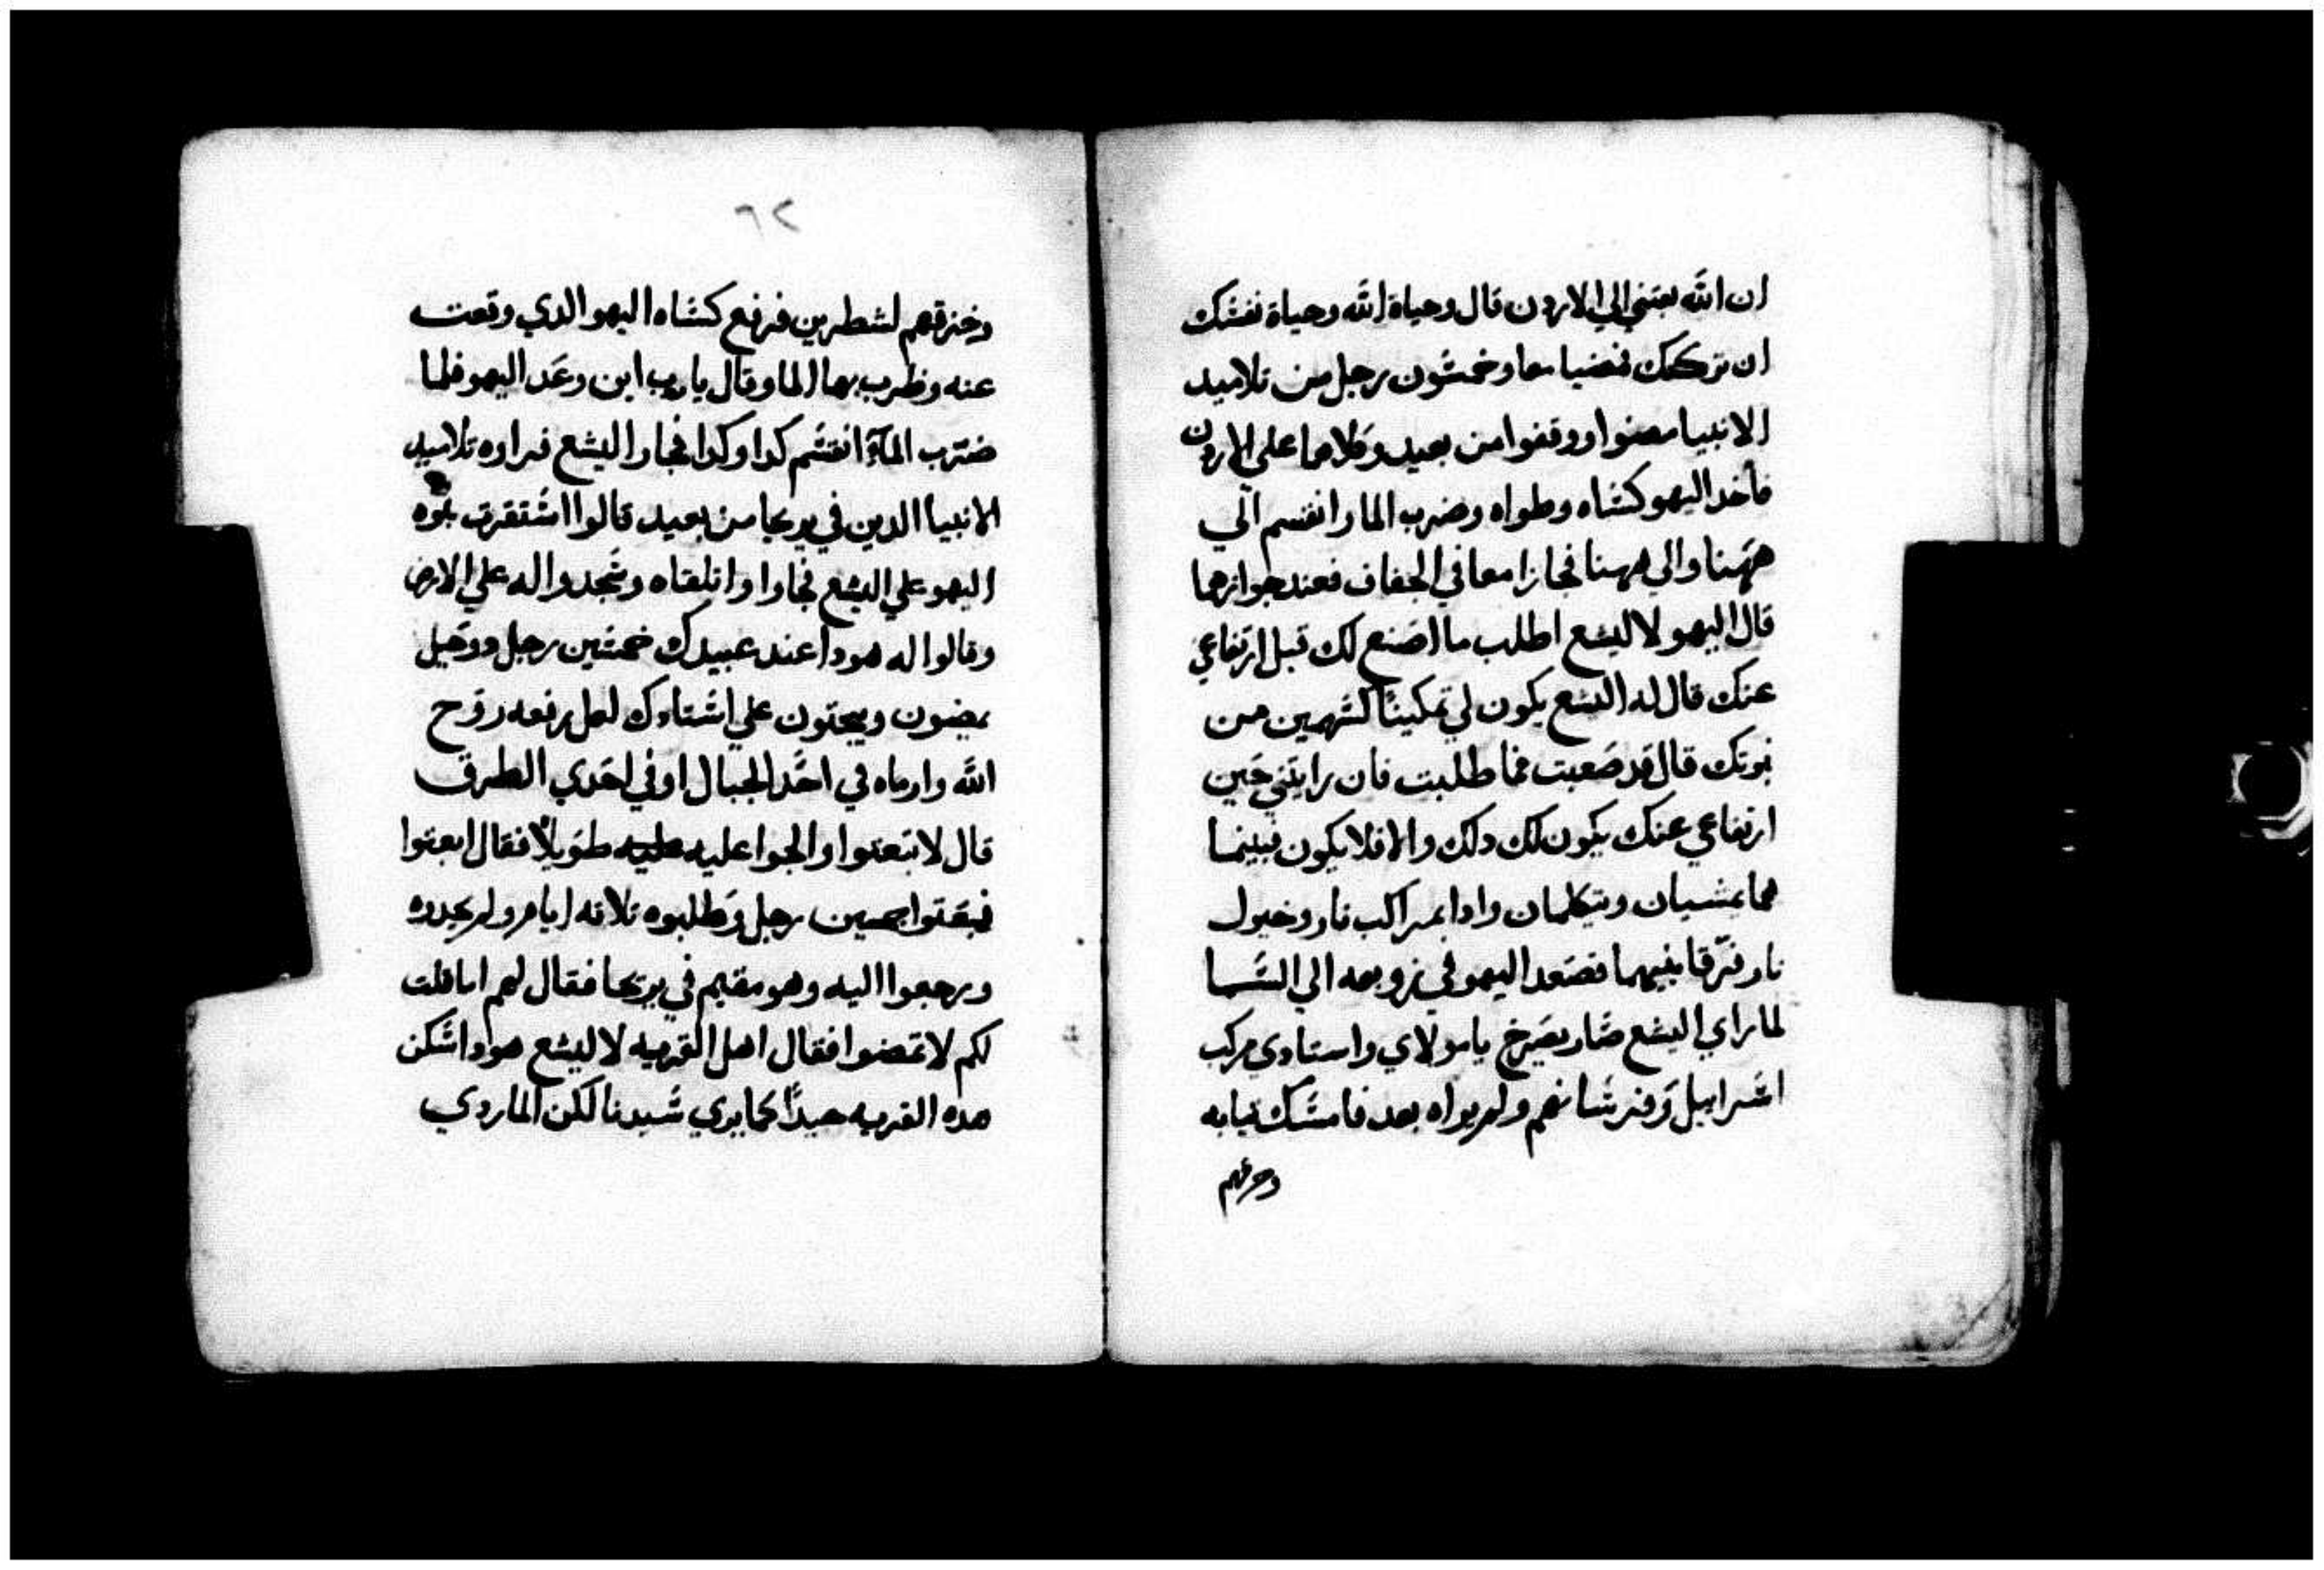 ان الله بعتني الي الاردن قال وحياة الله وحياة نفسك
ان تركتك فمضيا معا وخمسون رجل من تلاميد
الانبيا مضوا ووقفوا من بعيد وكلاهما على الاردن
فأخد اليهو كساه وطواه وضرب الما وانقسم الي
ههنا والي ههنا فجازا معا في الجفاف فعند جوازهما
قال اليهو لاليشع اطلب ما اصنع لك قبل ارتفاعي
عنك قال له اليشع يكون لي تمكينًا كسهمين من
نبوتك قال قد صعبت فما طلبت فان رايتني حين
ارتفاعي عنك يكون لك دلك والا فلا يكون فبينما
هما يمشيان ويتكلمان وادا بمراكب نار وخيول
نار فرّقا بينهما فصعد اليهو في زوبعه الي السما
لما راي اليشع صار يصرخ يا مولاي واستادي مركب
اسراييل وفرسانهم ولم يراه بعد فامسك تيابه
وخرقهم
٦٢
وخرقهم لشطرين فرفع كساه اليهو الدي وقعت
عنه وظرب بها الما وقال يا رب اين وعد اليهو فلما
ضرب المآء انقسم كدا وكدا فجاز اليشع فراوه تلاميد
الانبيا الدين في يريحا من بعيد قالوا استقرت نبوه
اليهو علي اليشع فجاوا وانلقاه وسجدوا له علي الارض
وقالوا له هودا عند عبيدك خمسين رجل ووحيل
يمضون ويبحتون علي استادك لعل رفعه روح
الله وارماه في احد الجبال او في احدي الطرق
قال لا تبعتوا والجوا عليه عليه طويلًا فقال ابعتوا
فبعتوا خمسين رجل وطلبوه تلاته ايام ولم يجدوه
ورجعوا اليه وهو مقيم في يريحا فقال لهم اما قلت
لكم لا تمضوا فقال اهل القريه لاليشع هودا اسكن
هده القريه جيدًا كما يري سيدنا لكن الما ردي